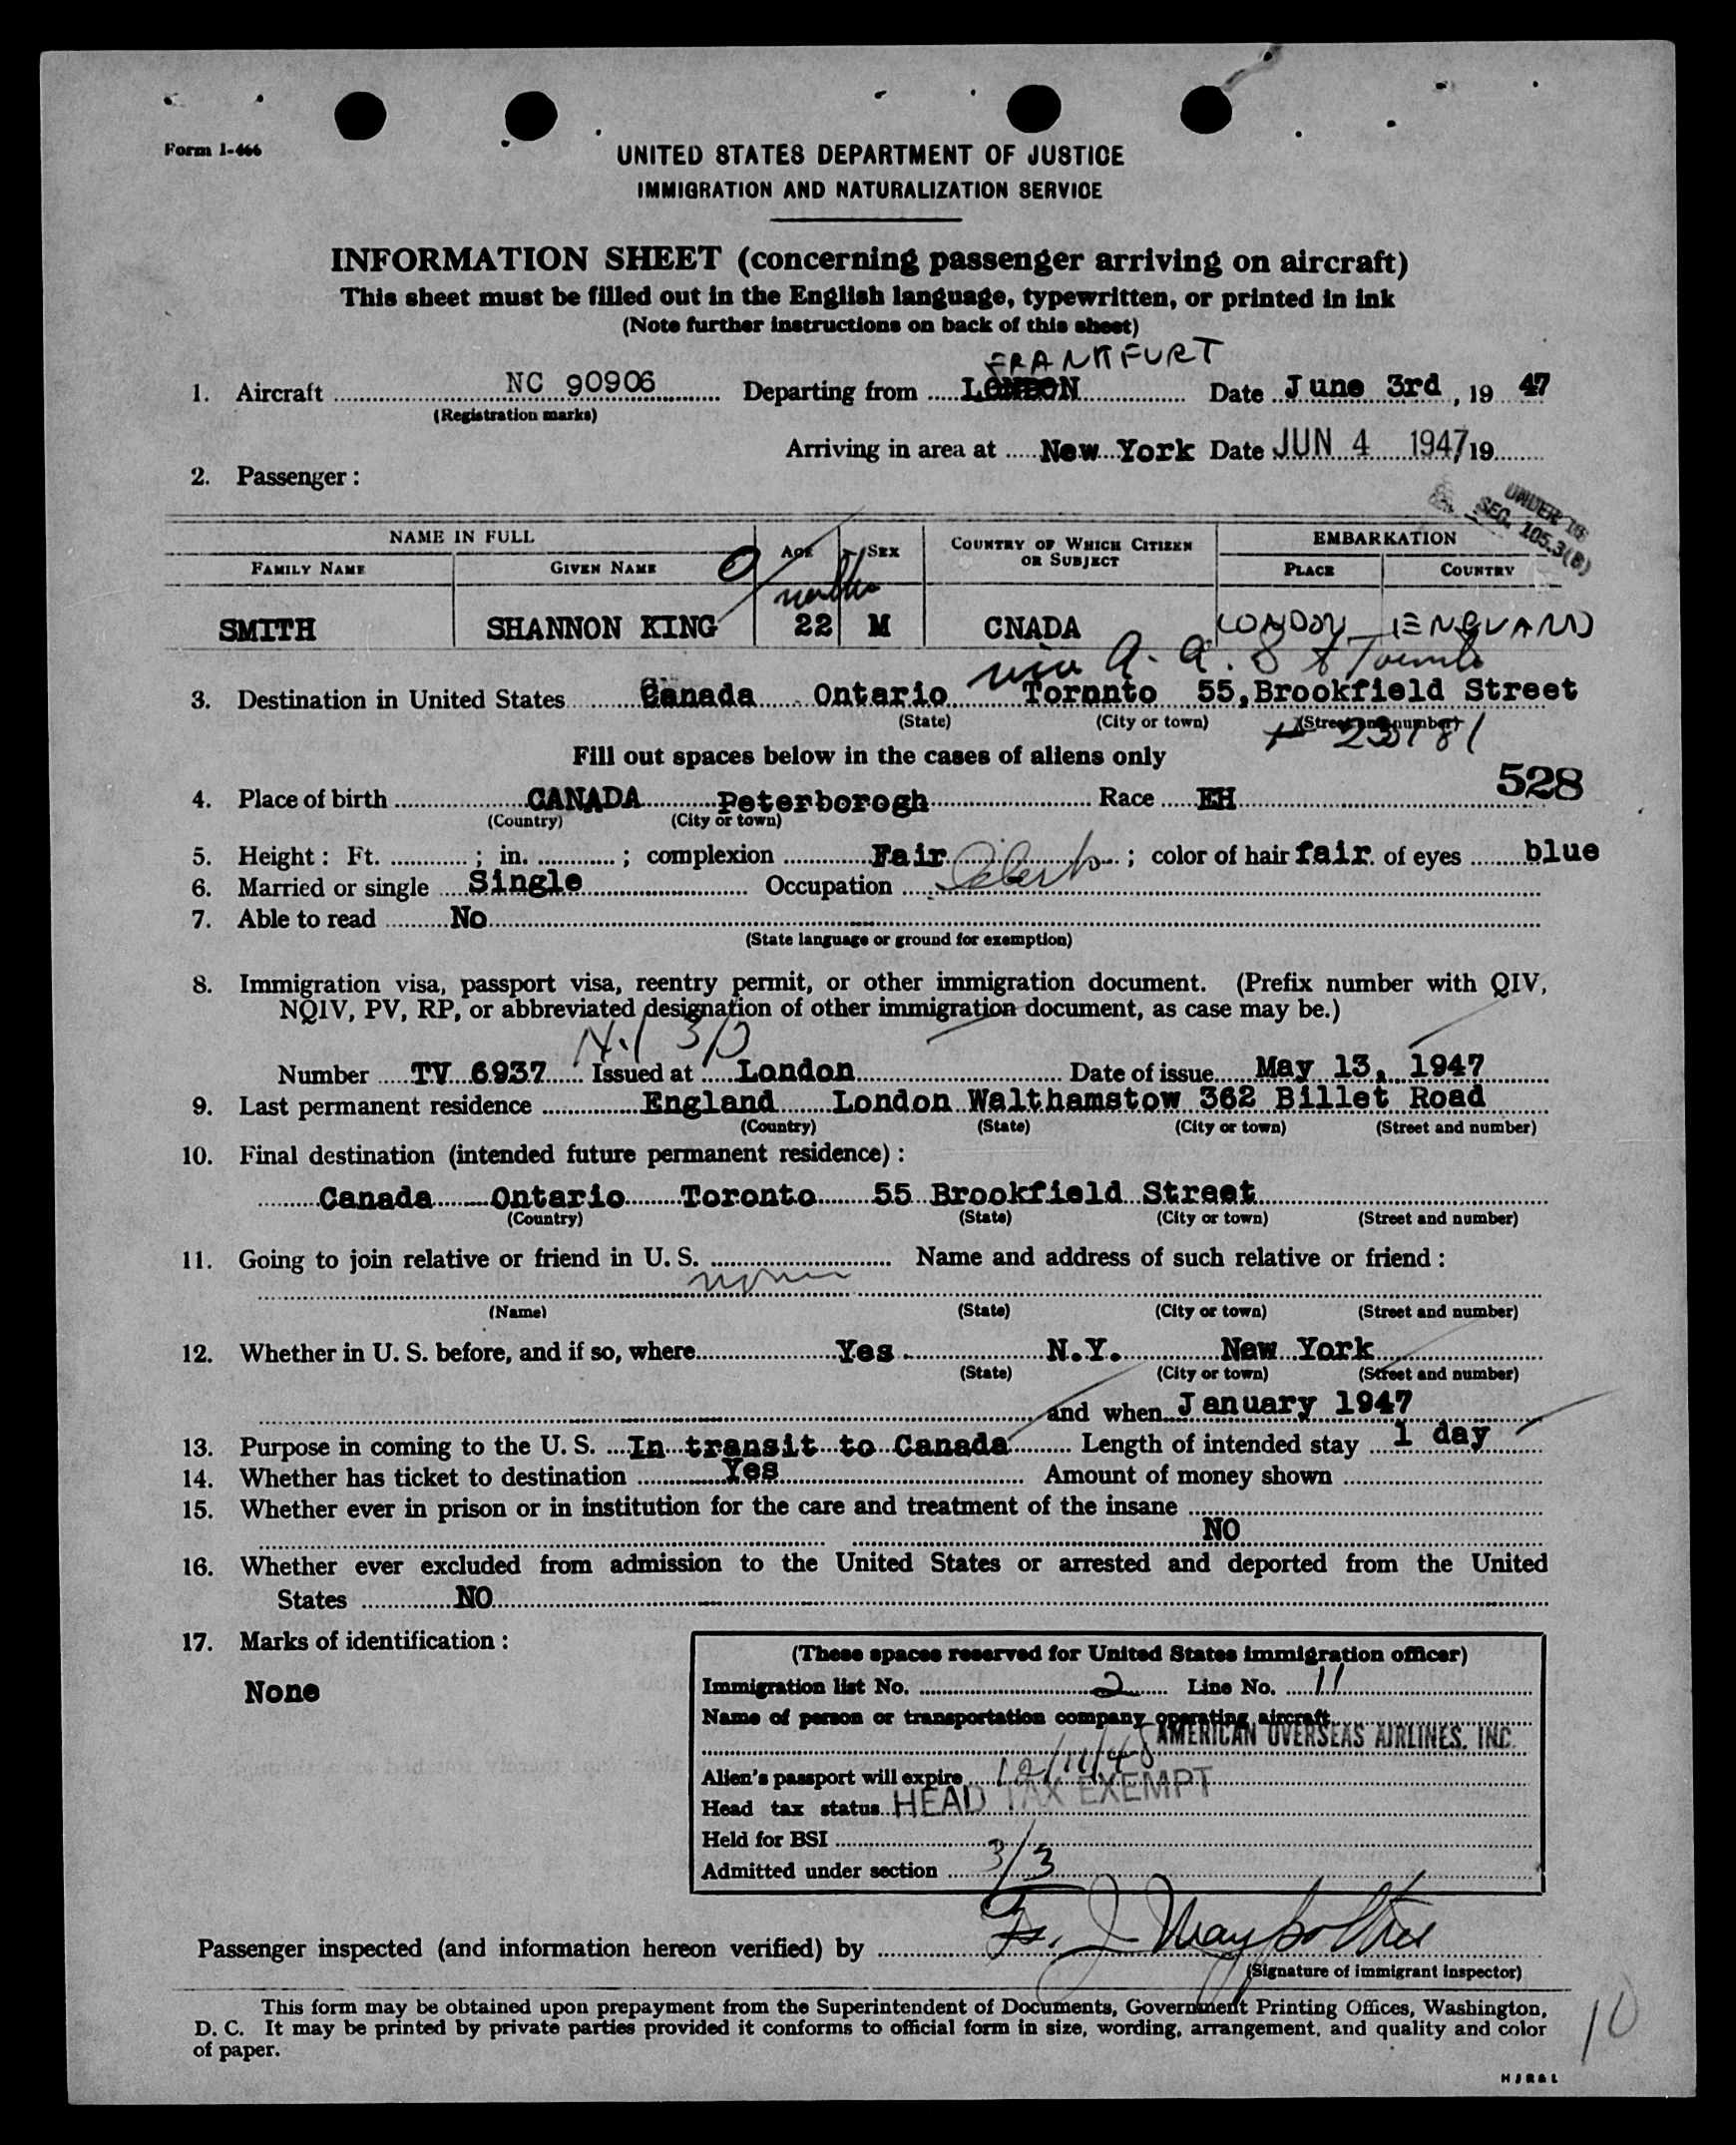 Form I-466
UNITED STATES DEPARTMENT OF JUSTICE
IMMIGRATION AND NATURALIZATION SERVICE
INFORMATION SHEET (concerning passenger arriving on aircraft)
This sheet must be filled out in the English language, typewritten, or printed in ink
(Note further instructions on back of this sheet)
FRANKFURT
1. Aircraft NC 90906 Departing from LONDON Date June 3rd, 19 47
(Registration marks)
Arriving in area at New York Date JUN 4 1947 19
2. Passenger:
UNDER 16
SEC. 105.3(B)
NAME IN FULL AGE SEX COUNTRY OF WHICH CITIZEN OR SUBJECT EMBARKATION
FAMILY NAME GIVEN NAME PLACE COUNTRY
months
SMITH SHANNON KING 22 M CNADA LONDON ENGLAND
via A. A. to Toronto
3. Destination in United States Canada Ontario Toronto 55, Brookfield Street
(State) (City or town) (Street and number)
Fill out spaces below in the cases of aliens only
528
4. Place of birth CANADA Peterborogh Race EH
(Country) (City or town)
5. Height: Ft. ; in. ; complexion Fair ; color of hair fair of eyes blue
6. Married or single Single Occupation
7. Able to read No
(State language or ground for exemption)
8. Immigration visa, passport visa, reentry permit, or other immigration document. (Prefix number with QIV,
NQIV, PV, RP, or abbreviated designation of other immigration document, as case may be.)
Number TV 6937 Issued at London Date of issue May 13, 1947
9. Last permanent residence England London Walthamstow 362 Billet Road
(Country) (State) (City or town) (Street and number)
10. Final destination (intended future permanent residence):
Canada Ontario Toronto 55 Brookfield Street
(Country) (State) (City or town) (Street and number)
11. Going to join relative or friend in U. S. Name and address of such relative or friend:
none
(Name) (State) (City or town) (Street and number)
12. Whether in U. S. before, and if so, where Yes N.Y. New York
(State) (City or town) (Street and number)
and when January 1947
13. Purpose in coming to the U. S. In transit to Canada Length of intended stay 1 day
14. Whether has ticket to destination Yes Amount of money shown
15. Whether ever in prison or in institution for the care and treatment of the insane
NO
16. Whether ever excluded from admission to the United States or arrested and deported from the United
States NO
17. Marks of identification:
None
(These spaces reserved for United States immigration officer)
Immigration list No. 2 Line No. 11
Name of person or transportation company operating aircraft
AMERICAN OVERSEAS AIRLINES. INC.
Alien's passport will expire 12/11/48
Head tax status HEAD TAX EXEMPT
Held for BSI
Admitted under section 3/3
Passenger inspected (and information hereon verified) by
(Signature of immigrant inspector)
This form may be obtained upon prepayment from the Superintendent of Documents, Government Printing Offices, Washington,
D. C. It may be printed by private parties provided it conforms to official form in size, wording, arrangement, and quality and color
of paper.
10
HJR&L